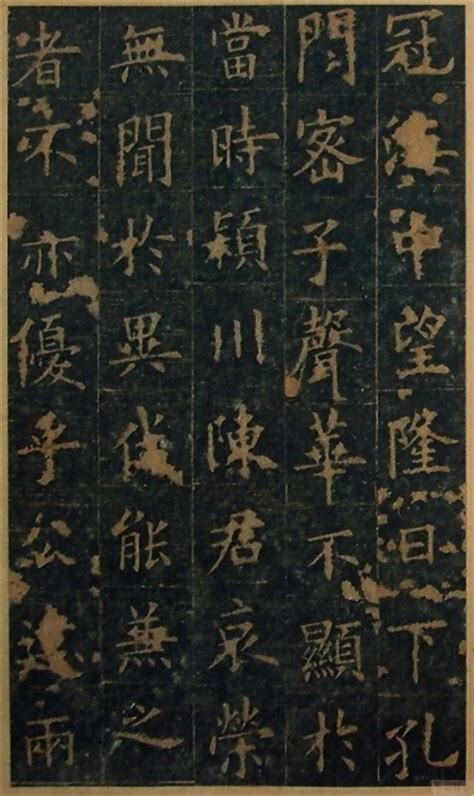 冠中望隆日下孔
門密子聲華不顯於
當時穎川陳君哀榮
無聞於異代能兼之
者不亦優乎公兩